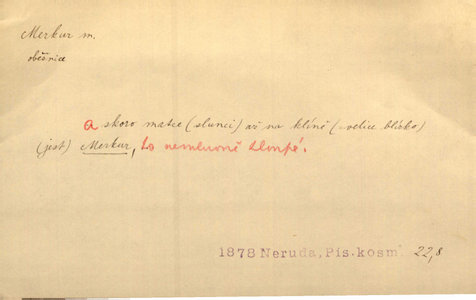 Merkur m.
oběžnice
A skoro matce (slunci) až na klíně (=velice blízko)
(jest) Merkur, to nemluvně hloupé.
1878 Neruda, Pís. kosm. 22,8